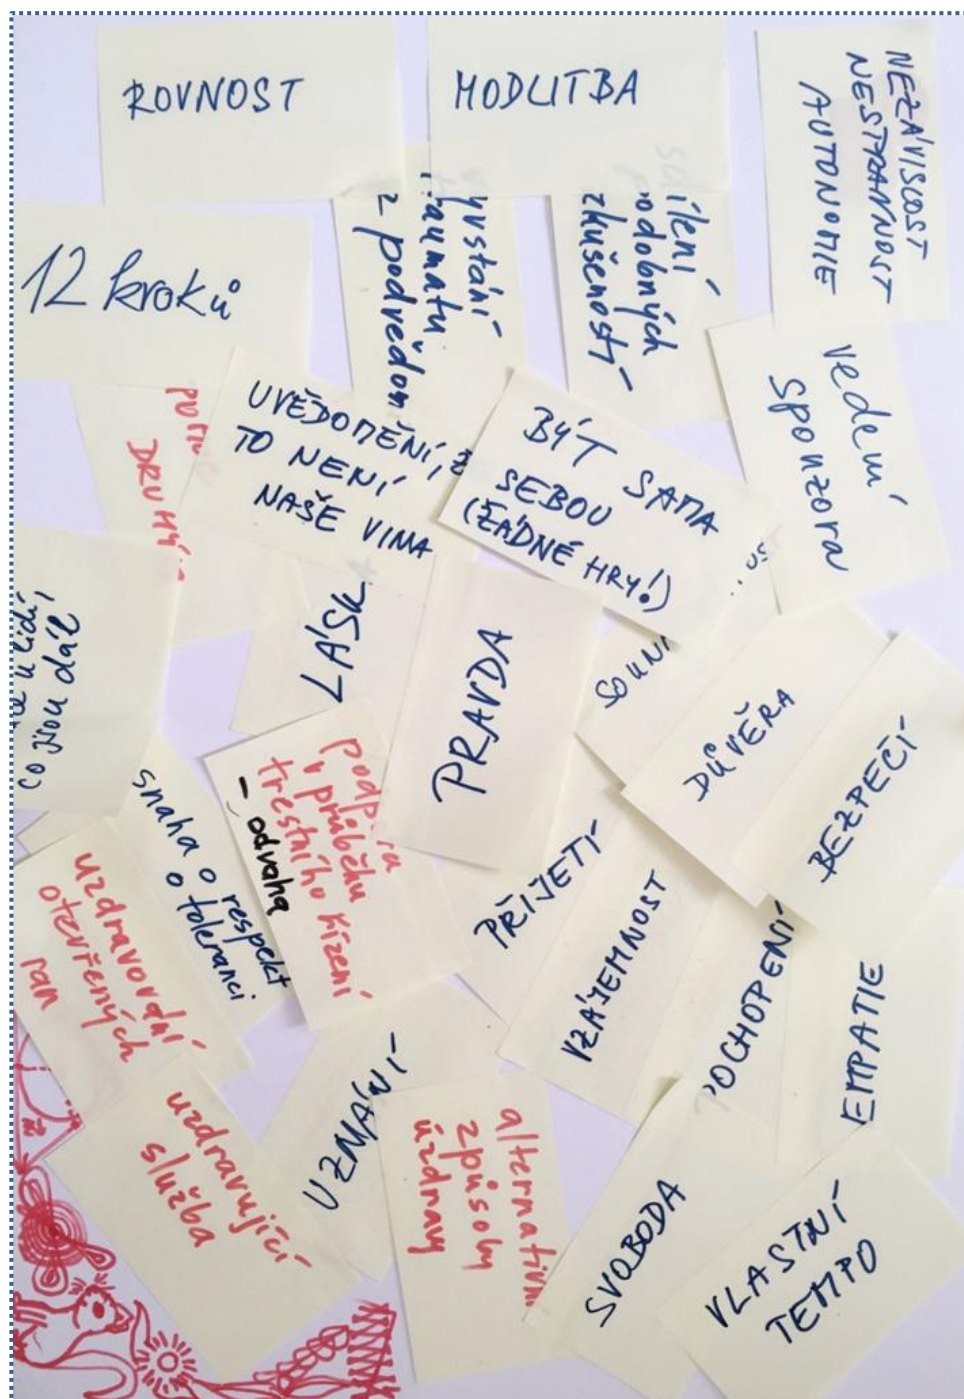 ROVNOST
MODLITBA
NEZÁVISLOST
NESTRANNOST
AUTONOMIE
12 kroků
traumatu
z podvědomí
sdílení
podobných
zkušeností
vedení
sponzora
UVĚDOMĚNÍ, ŽE
TO NENÍ
NAŠE VINA
BÝT SAMA
SEBOU
(ŽÁDNÉ HRY!)
DRUHÝ
LÁSK
PRAVDA
SOUN
DŮVĚRA
BEZPEČÍ
u lidí,
co jsou dál
snaha o respekt
o toleranci
podpora
v průběhu
trestního řízení
- odvaha
PŘIJETÍ
VZÁJEMNOST
POCHOPENÍ
EMPATIE
uzdravování
otevřených
ran
uzdravující
služba
UZNÁNÍ
alternativní
způsoby
úzdravy
SVOBODA
VLASTNÍ
TEMPO